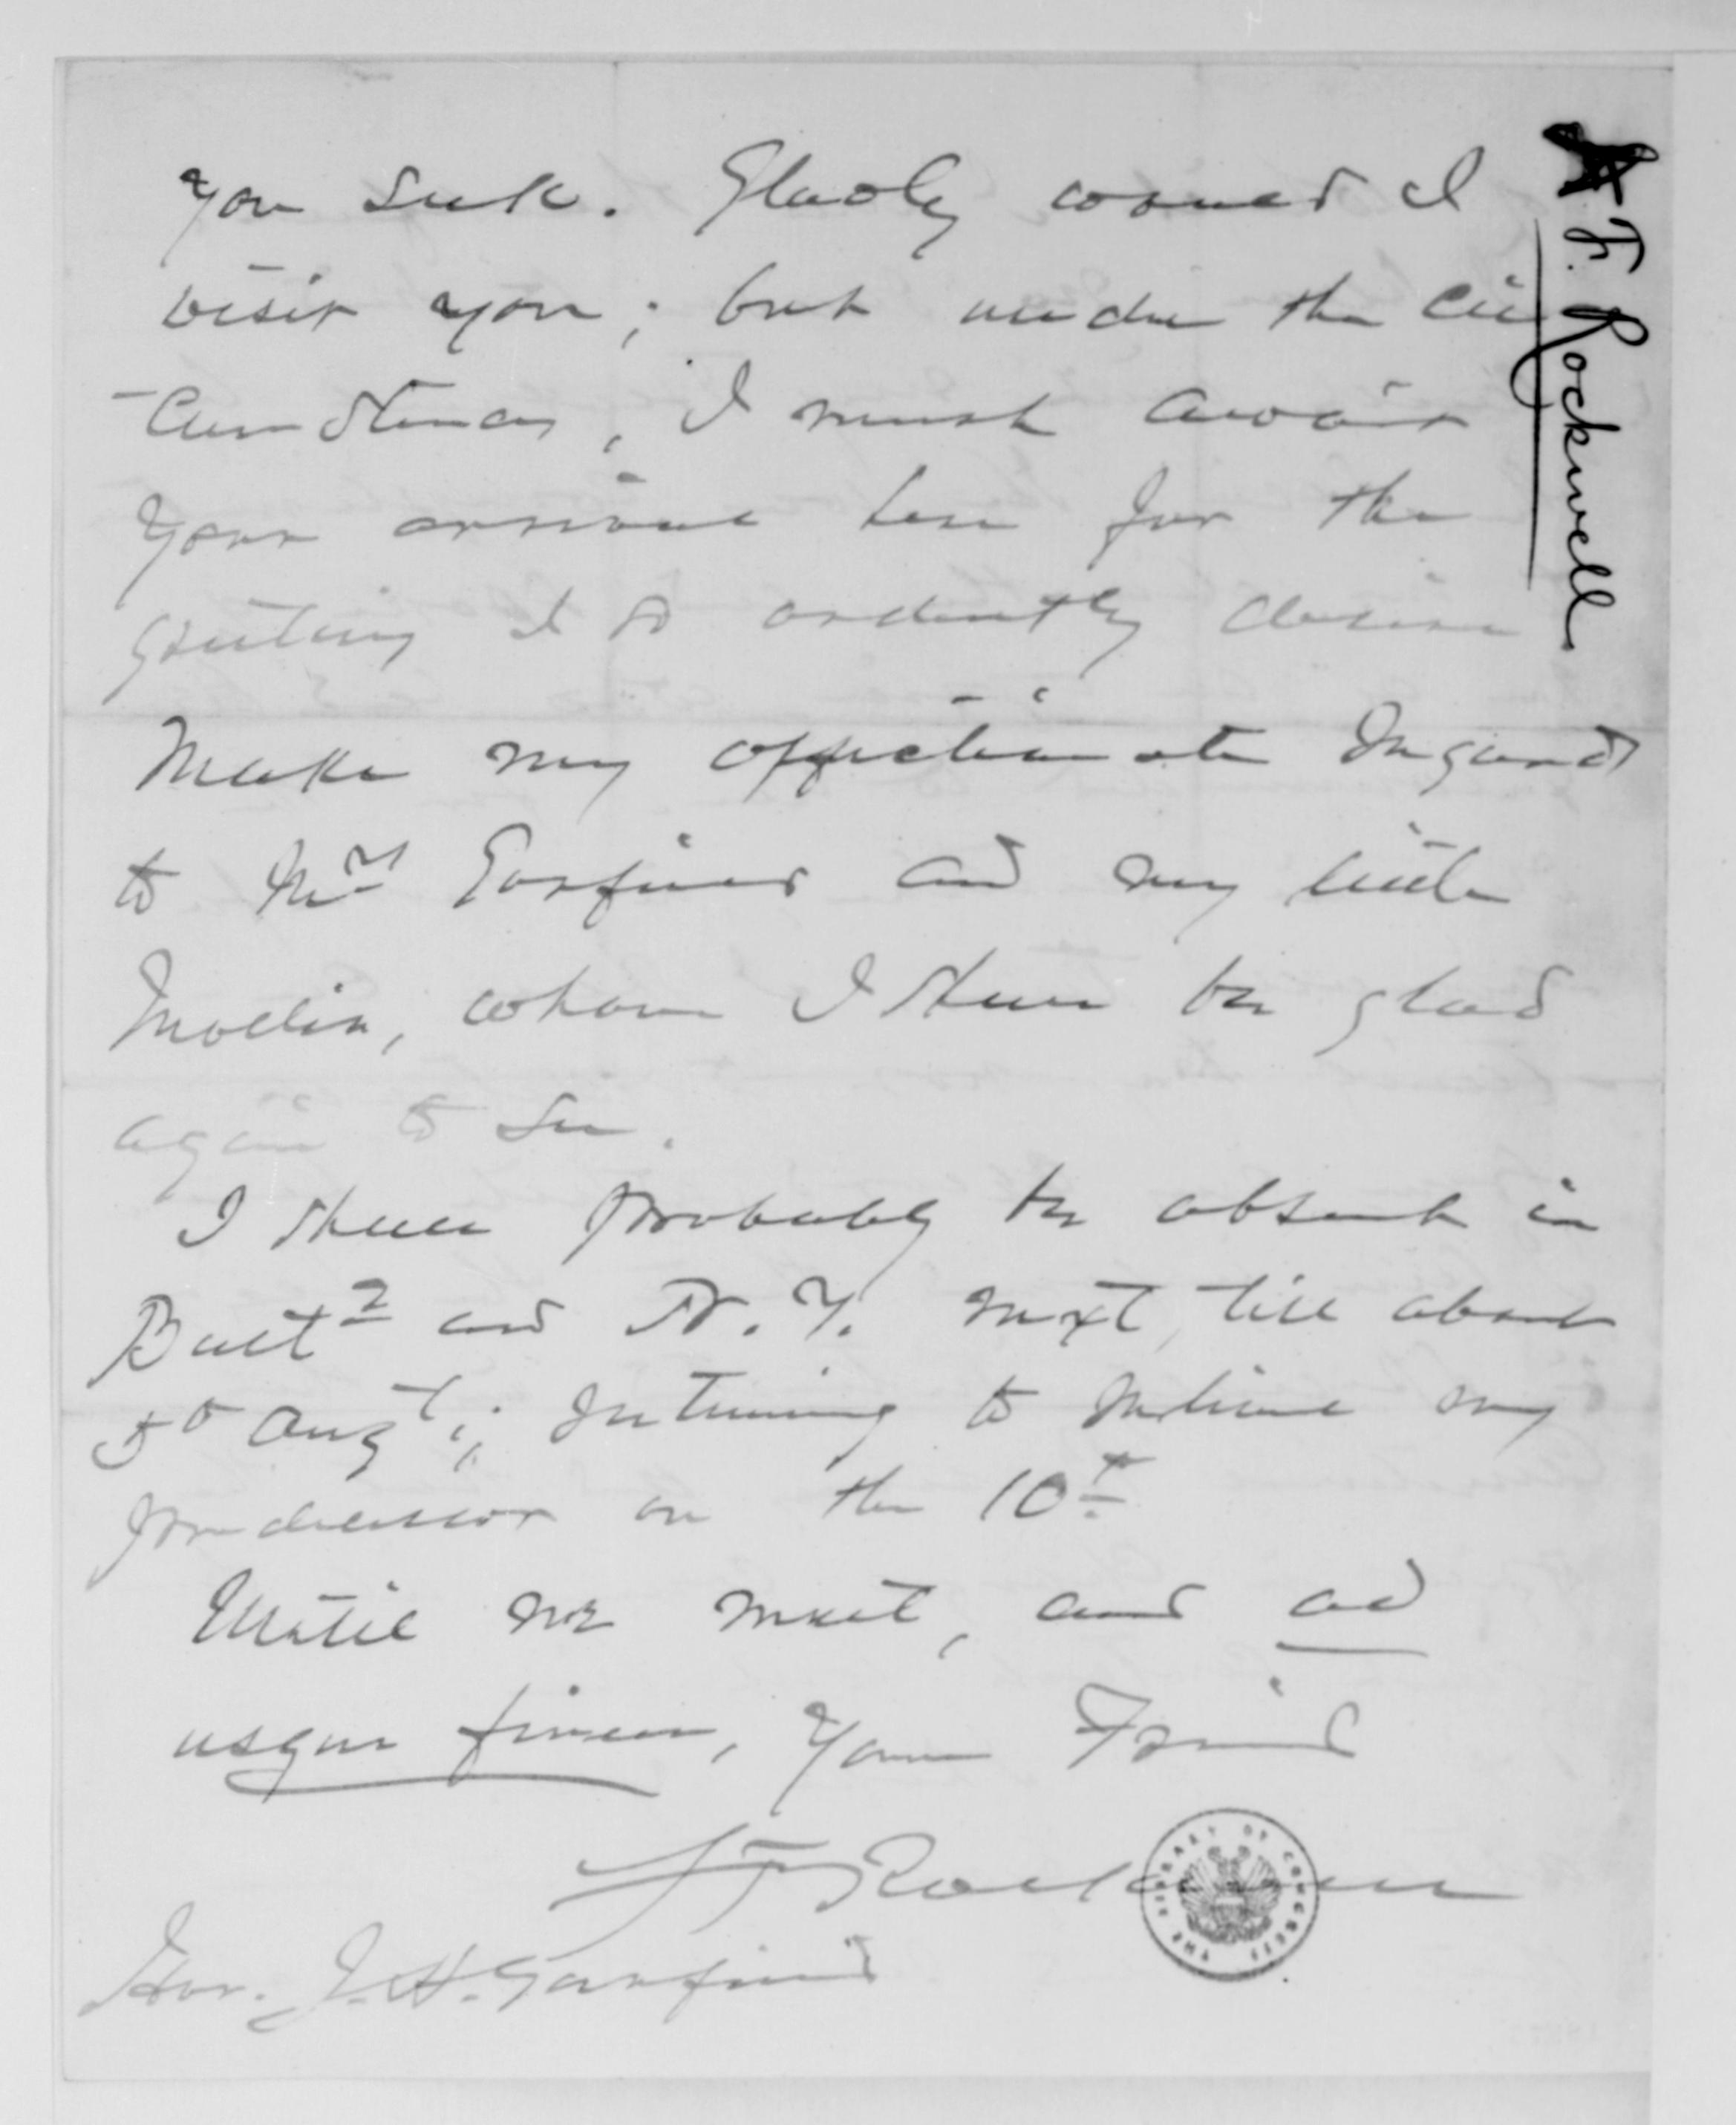 you seek. Gladly would I
visit you; but under the cir
-cumstances, I must await
your arrival here for the
greeting I so ardently desire
Make my affectionate regards
to Mrs Garfield and my little
Mollie, whom I shall be glad
again to see.
I shall probably be absent in
Balto and N.Y. next, till about
5th Augt; returning to relieve my
predecessor on the 10th
Until we meet, and ad
usque finem, Your Friend
AF Rockwell
Hon. J. H. Garfield
A F. Rockwell
THE LIBRARY OF CONGRESS